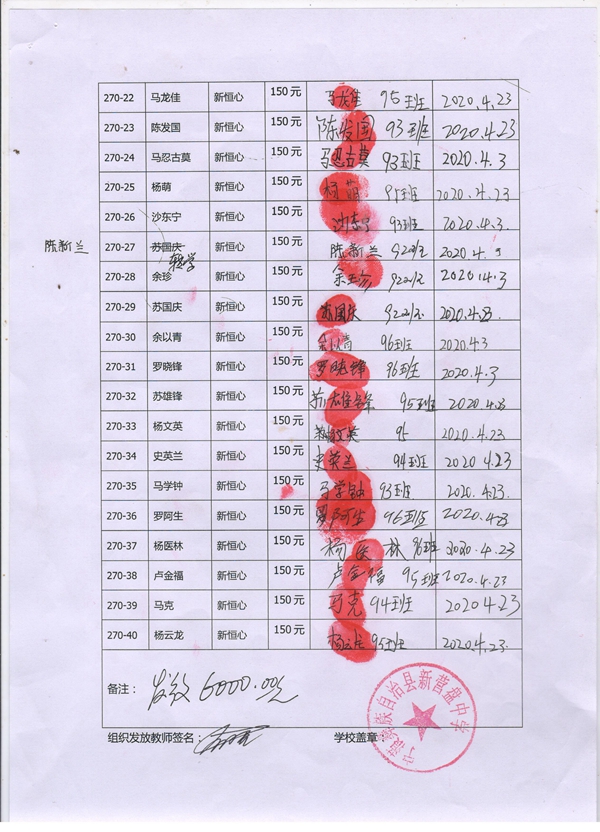 270-22 马龙佳 新恒心 150元 马龙佳 95班 2020.4.23
270-23 陈发国 新恒心 150元 陈发国 93班 2020.4.23
270-24 马忍古莫 新恒心 150元 马忍古莫 93班 2020.4.3
270-25 杨萌 新恒心 150元 杨萌 95班 2020.4.23
270-26 沙东宁 新恒心 150元 沙东宁 93班 2020.4.3
陈新兰 270-27 苏国庆 转学 新恒心 150元 陈新兰 92班 2020.4.3
270-28 余珍 新恒心 150元 92班 2020.4.3
270-29 苏国庆 新恒心 150元 苏国庆 92班 2020.4.23
270-30 余以青 新恒心 150元 余以青 96班 2020.4.3
270-31 罗晓锋 新恒心 150元 罗晓锋 96班 2020.4.3
270-32 苏雄锋 新恒心 150元 苏雄锋 95班 2020.4.23
270-33 杨文英 新恒心 150元 杨文英 95 2020.4.23
270-34 史英兰 新恒心 150元 史英兰 94班 2020.4.23
270-35 马学钟 新恒心 150元 马学钟 93班 2020.4.23.
270-36 罗阿生 新恒心 150元 罗阿生 96班 2020.4.23
270-37 杨医林 新恒心 150元 杨医林 96班 2020.4.23
270-38 卢金福 新恒心 150元 卢金福 95班 2020.4.23
270-39 马克 新恒心 150元 马克 94班 2020.4.23
270-40 杨云龙 新恒心 150元 杨云龙 95班 2020.4.23.
备注： 发放6000.00元
组织发放教师签名： 学校盖章：
宁蒗彝族自治县新营盘中学